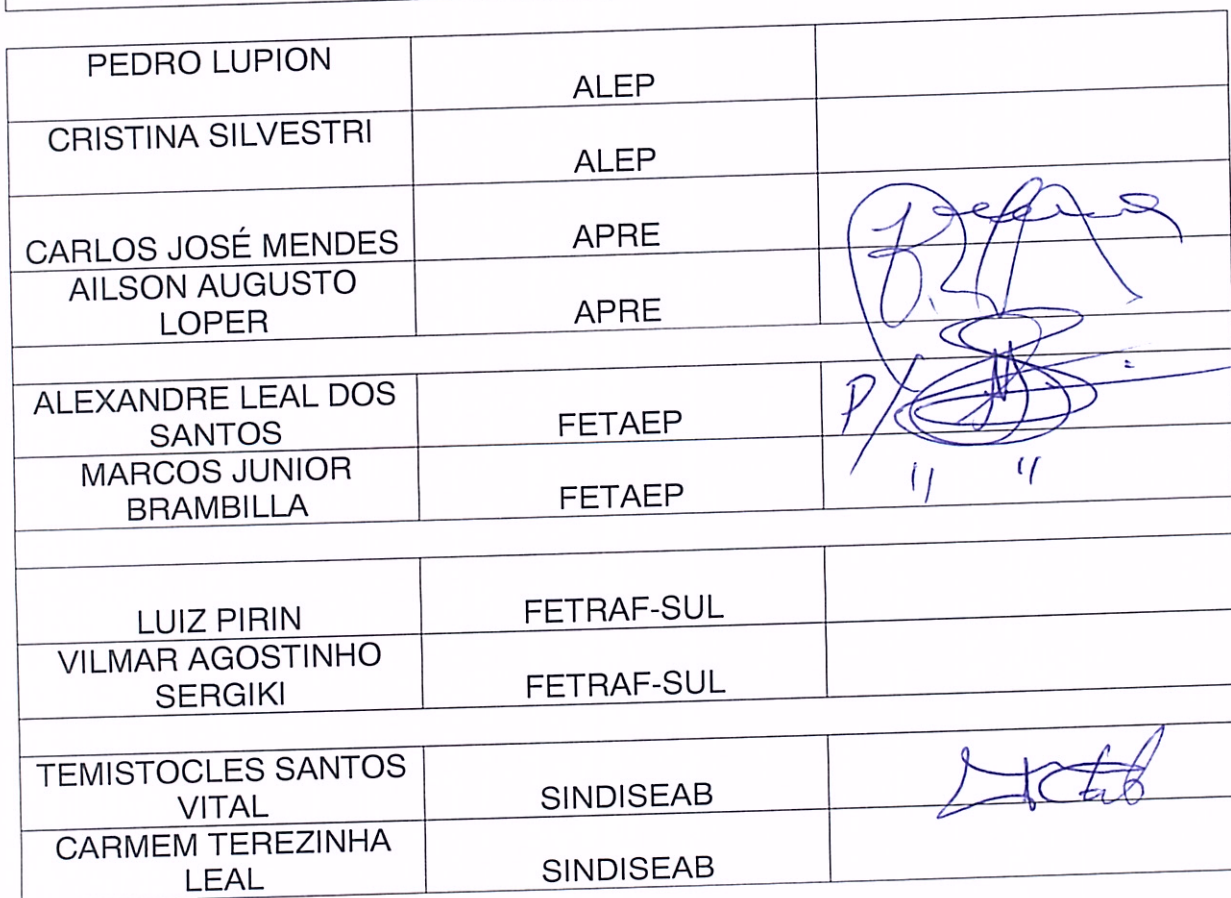 PEDRO LUPION
ALEP
CRISTINA SILVESTRI
ALEP
CARLOS JOSÉ MENDES
APRE
AILSON AUGUSTO
LOPER
APRE
ALEXANDRE LEAL DOS
SANTOS
FETAEP
P/
MARCOS JUNIOR
BRAMBILLA
FETAEP
" "
LUIZ PIRIN
FETRAF-SUL
VILMAR AGOSTINHO
SERGIKI
FETRAF-SUL
TEMISTOCLES SANTOS
VITAL
SINDISEAB
CARMEM TEREZINHA
LEAL
SINDISEAB